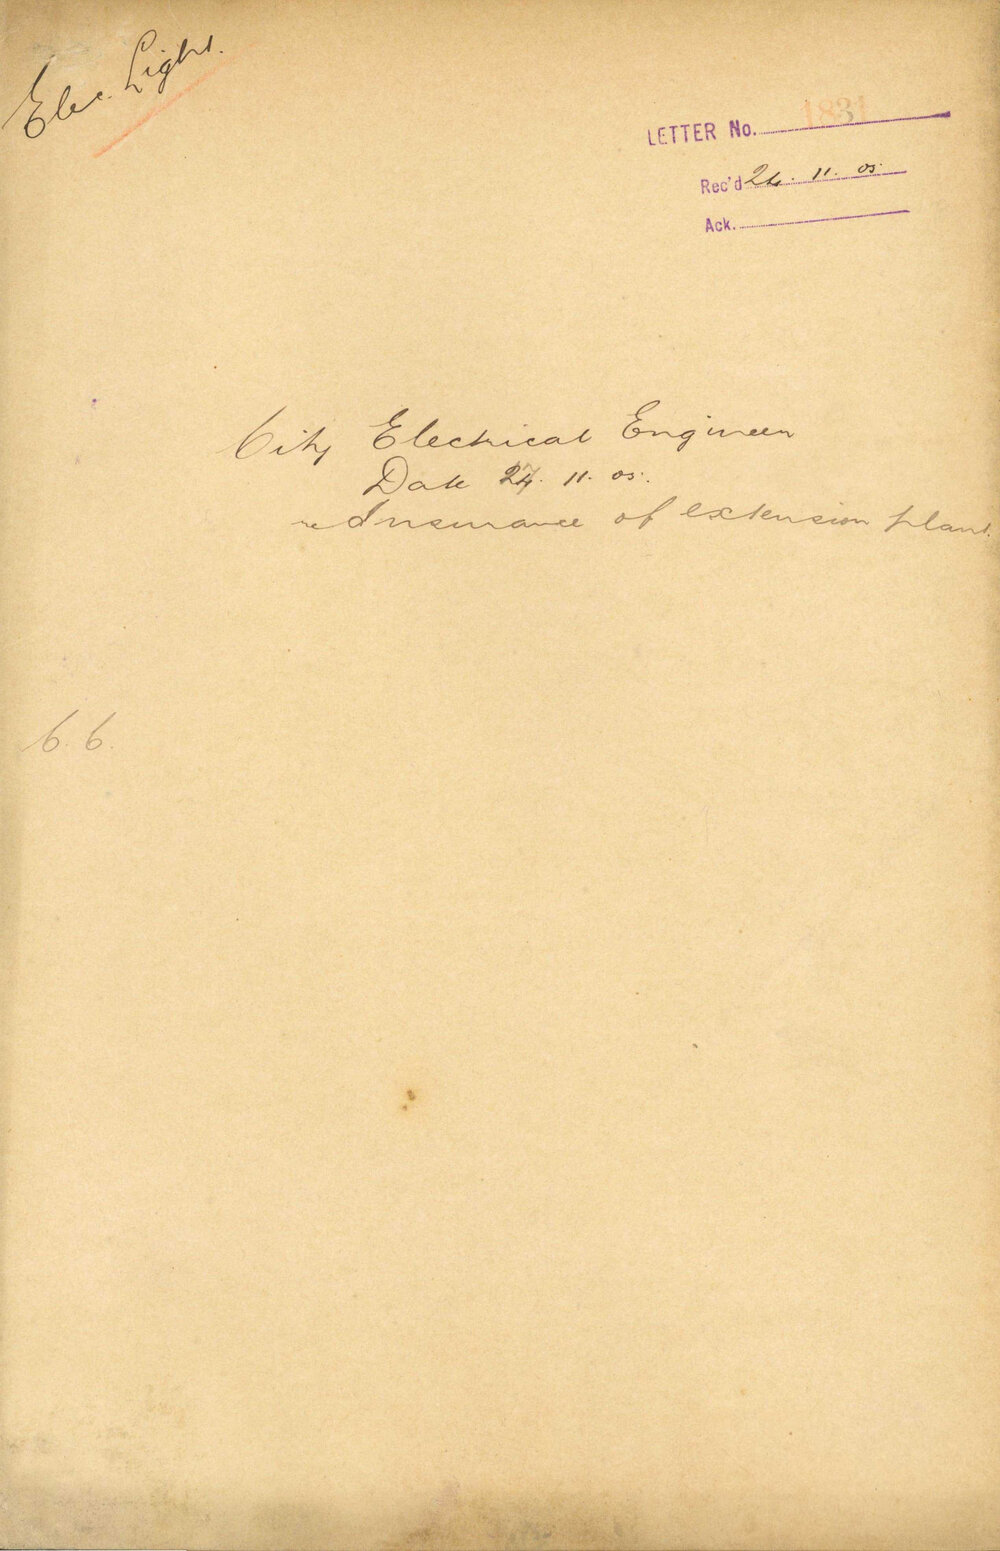 Elec. Light.
LETTER No. 1831
Rec'd 24. 11. 05.
Ack.
City Electrical Engineer
Date 24. 11. 05.
re Insurance of extension plant.